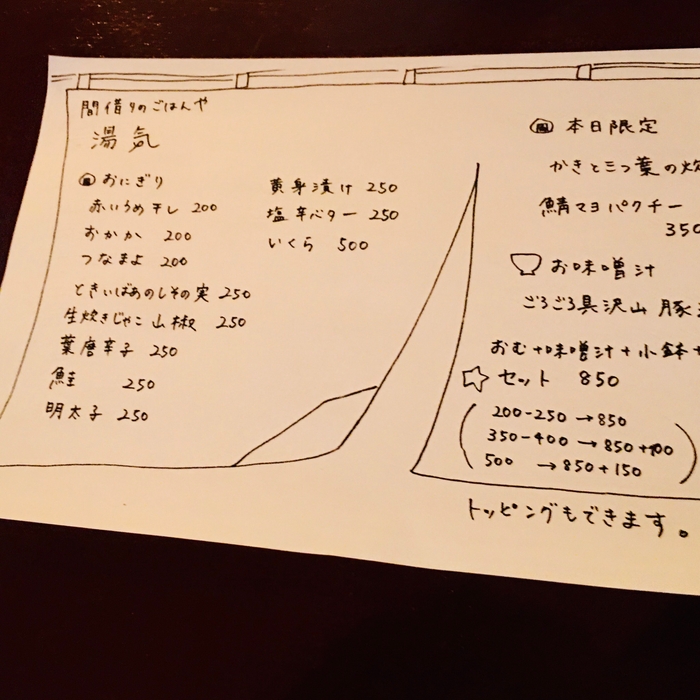 間借りのごはんや
湯気
おにぎり
赤いうめ干し 200
おかか 200
つなまよ 200
ときいばあのしその実 250
生炊きじゃこ山椒 250
葉唐辛子 250
鮭 250
明太子 250
黄身漬け 250
塩辛バター 250
いくら 500
本日限定
かきと三つ葉の炊
鯖マヨパクチー
350
お味噌汁
ごろごろ具沢山 豚
おむ+味噌汁+小鉢+
☆ セット 850
200-250 →850
350-400 → 850+100
500 →850+150
トッピングもできます。